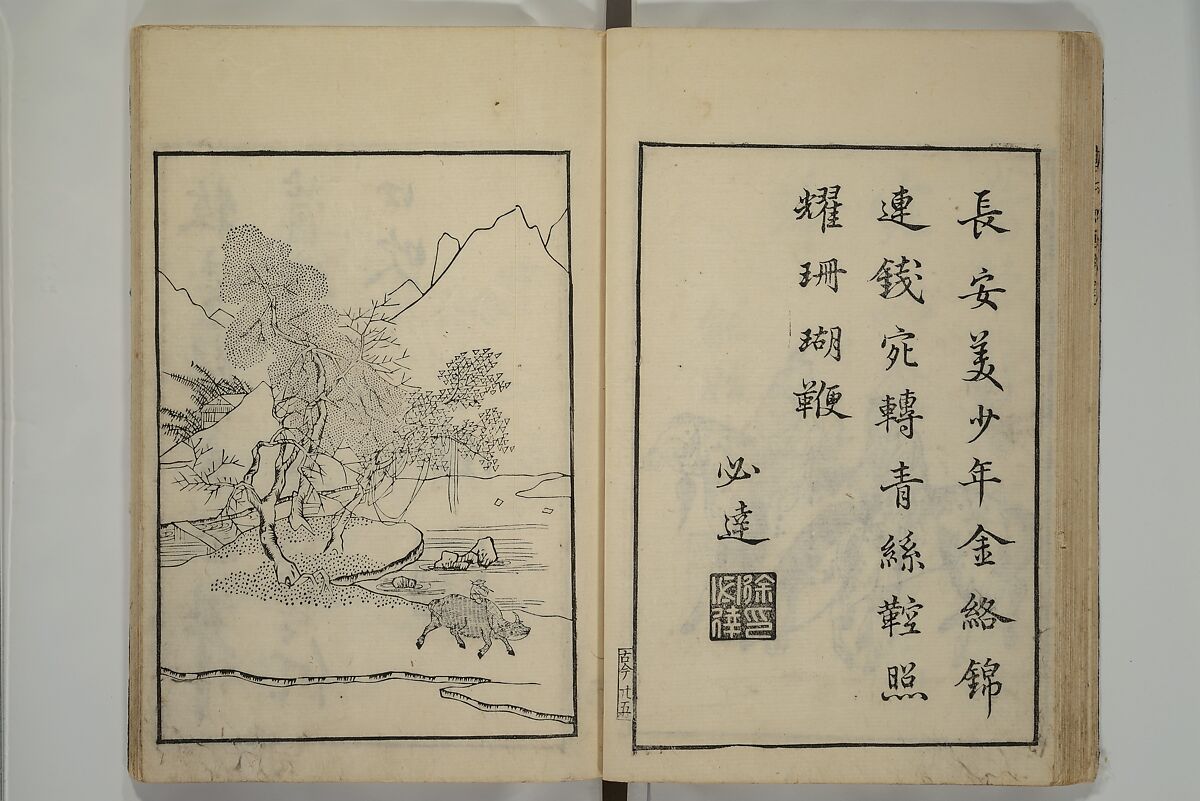 長安美少年金絡錦
連錢宛轉青絲鞚照
耀珊瑚鞭
必逵
徐必達印
古今 廿五